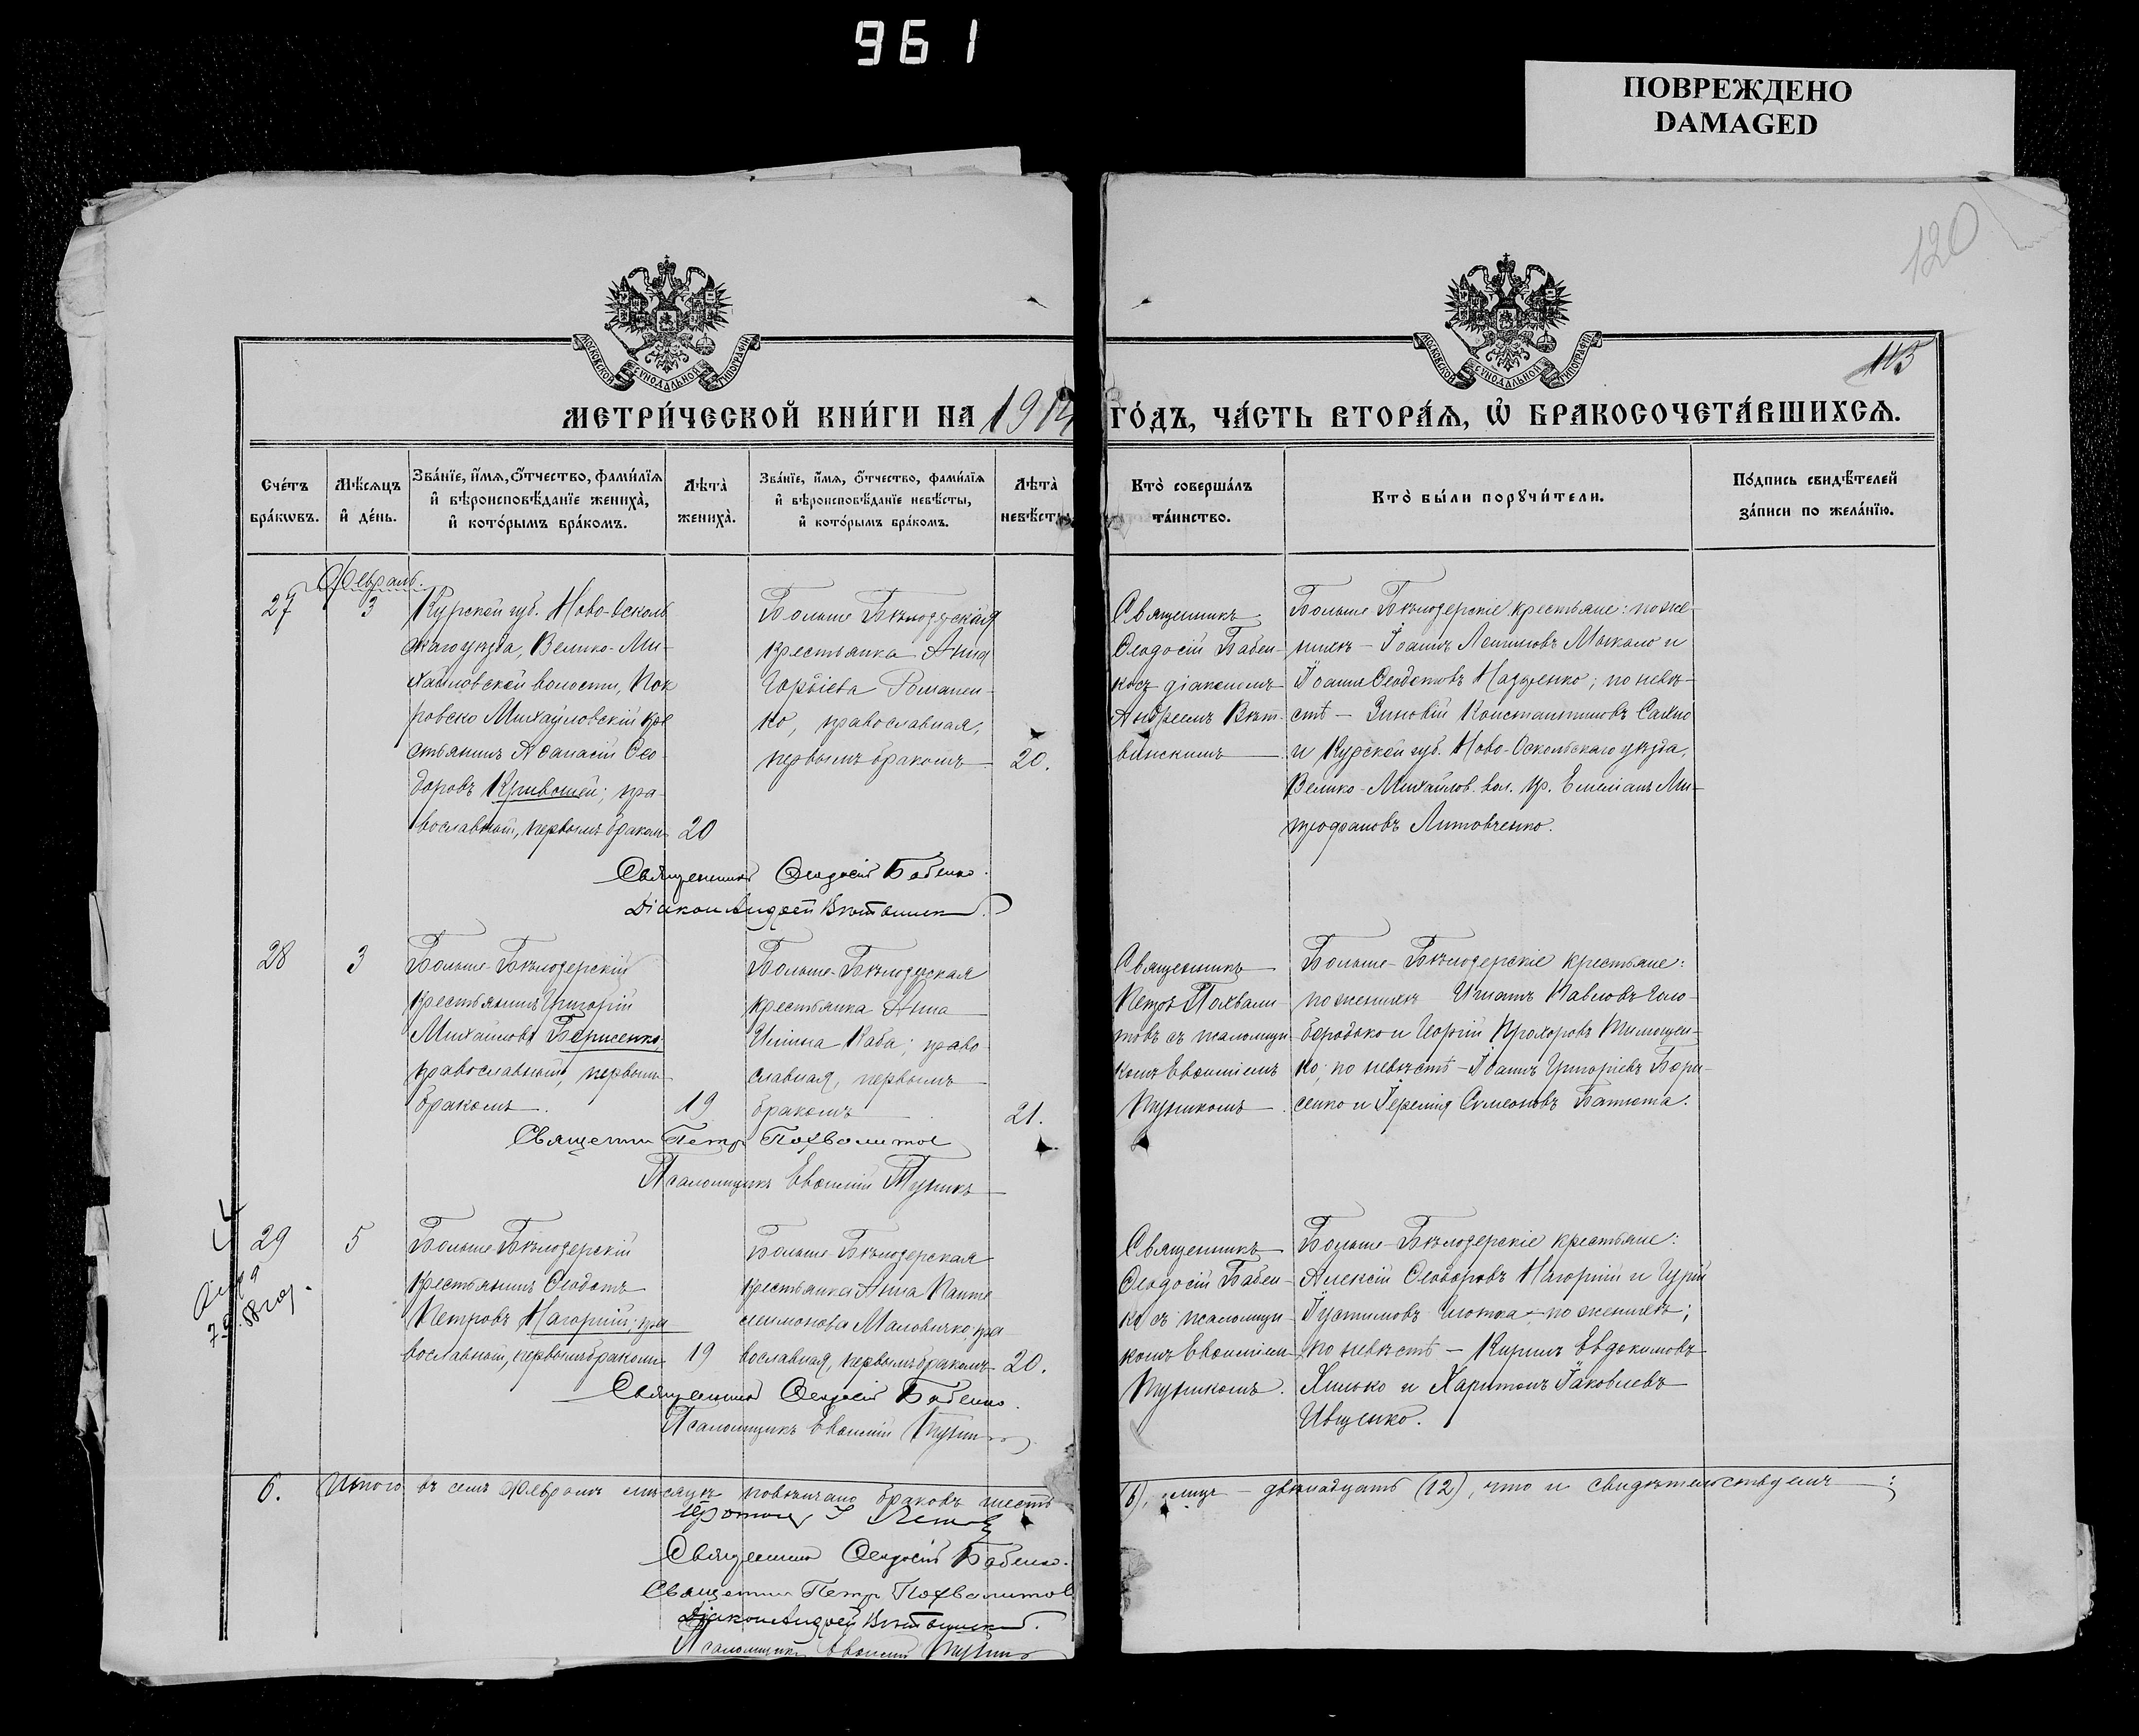 961
ПОВРЕЖДЕНО
DAMAGED
120
115
МОСКОВСКОЙ СУНОДАЛЬНОЙ ТИПОГРАФІИ
МОСКОВСКОЙ СУНОДАЛЬНОЙ ТИПОГРАФІИ
МЕТРИ́ЧЕСКОЙ КНИ́ГИ НА 1914 ГО́ДЪ, ЧА́СТЬ ВТОРА́Я, Ѡ҆ БРАКОСОЧЕТА́ВШИХСѦ.
Сче́тъ бра́кѡвъ.
Мѣ́сяцъ и҆ де́нь.
Зва́нїе, и҆́мя, ѻ҆́тчество, фами́лїя и҆ вѣроисповѣ́данїе жениха̀, и҆ кото́рымъ бра́комъ.
Лѣта̀ жениха̀.
Зва́нїе, и҆́мя, ѻ҆́тчество, фами́лїя и҆ вѣроисповѣ́данїе невѣ́сты, и҆ кото́рымъ бра́комъ.
Лѣта̀ невѣ́сты
Кто̀ соверша́лъ та́инство.
Кто̀ бы́ли порꙋчи́тели.
По́дпись свидѣ́телей за́писи по жела́нїю.
Февраль.
27
3
Курской губ. Ново-Осколь
скаго уѣзда, Велико-Ми-
хайловской волости, Пок
ровско Михайловскій кре
стьянинъ Аѳанасій Ѳео-
доровъ Кривошей; пра-
вославный, первымъ бракомъ
20
Больше Бѣлозерская
крестьянка Анна
Гордіева Романен-
ко, православная,
первымъ бракомъ
20.
Священникъ
Ѳеодосій Бабен-
ко съ діакономъ
Андреемъ Вѣт-
винскимъ
Больше Бѣлозерскіе крестьяне: по же-
нихѣ – Іоаннъ Логиновъ Мыкало и
Іоаннъ Ѳеодотовъ Назаренко; по невѣ-
стѣ – Зиновій Константиновъ Сахно
и Курской губ. Ново-Оскольскаго уѣзда,
Велико-Михайлов. вол. кр. Емеліанъ Ми-
трофановъ Литовченко.
Священникъ Ѳеодосій Бабенко.
Діаконъ Андрей Вѣтвинскій.
28
3
Больше-Бѣлозерскій
крестьянинъ Григорій
Михайловъ Борисенко,
православный, первымъ
бракомъ.
19
Больше-Бѣлозерская
крестьянка Анна
Ильина Каба; право-
славная, первымъ
бракомъ
21.
Священникъ
Петръ Похвали-
товъ съ псаломщи-
комъ Евѳиміемъ
Тупикомъ
Больше-Бѣлозерскіе крестьяне:
по женихѣ Игнатъ Павловъ Голо-
бородько и Георгій Прохоровъ Тимощен-
ко; по невѣстѣ – Іоаннъ Григорьевъ Бори-
сенко и Іеремія Симеоновъ Батюта.
Священникъ Петръ Похвалитовъ
Псаломщикъ Евѳимій Тупикъ
29
5
Больше-Бѣлозерскій
крестьянинъ Ѳеодотъ
Петровъ Нагорній; пра
вославный, первымъ бракомъ
19
Больше-Бѣлозерская
крестьянка Анна Панте
леимонова Маловичко; пра
вославная, первымъ бракомъ
20.
Священникъ
Ѳеодосій Бабен-
ко съ псаломщи-
комъ Евѳиміемъ
Тупикомъ.
Больше-Бѣлозерскіе крестьяне:
Алексій Ѳеодоровъ Нагорній и Гурій
Іустиновъ – по женихѣ;
по невѣстѣ – Кириллъ Евдокимовъ
Хилько и Харитонъ Іаковлевъ
Ивщенко.
Священникъ Ѳеодосій Бабенко.
Псаломщикъ Евѳимій Тупикъ
6. Итого въ семъ Февралѣ мѣсяцѣ повѣнчано браковъ шесть (6), лицъ – двѣнадцать (12), что и свидѣтельствуемъ:
Священникъ Ѳеодосій Бабенко.
Священникъ Петръ Похвалитовъ
Діаконъ Андрей Вѣтвинскій.
Псаломщикъ Евѳимій Тупикъ